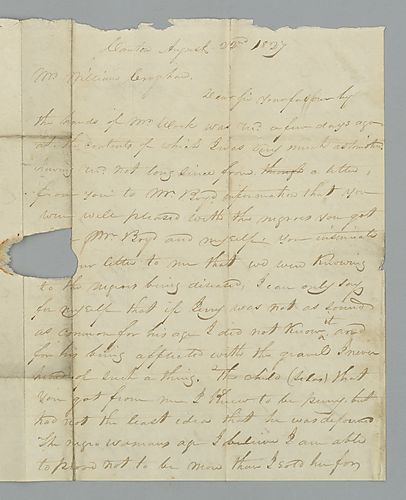 Canton August 22nd 1827
Mr William Croghan.
Dear Sir Your favour by
the hands of Mr Clark was recd. a few days ago
at the contents of which I was very much astonished
having recd. not long since from through a letter,
from you to Mr Boyd information that you
were well pleased with the negroes you got
Mr Boyd and myself. You insinuate
your letter to me that we were knowing
to the negroes being diseased, I can only say
for myself that if Jerry was not as sound
as common for his age I did not know it and
for his being afflicted with the gravel I never
heard of such a thing. The child (Silas) that
you got from me I knew to be puny but
had not the least idea that he was deformed
The negro womans age I believe I am able
to prove not to be more than I sold her for